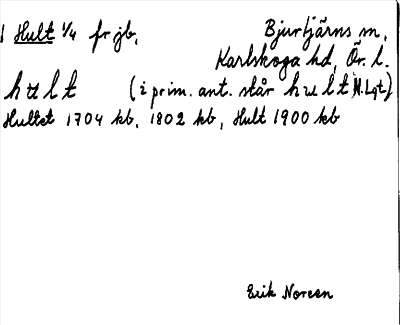 Hult 1/4 fr jb. Bjurtjärns sn,
Karlskoga hd, Ör. l.
hult (i prim. ant. står hult N. Lqt)
Hultet 1704 kb, 1802 kb, Hult 1900 kb
Erik Noreen